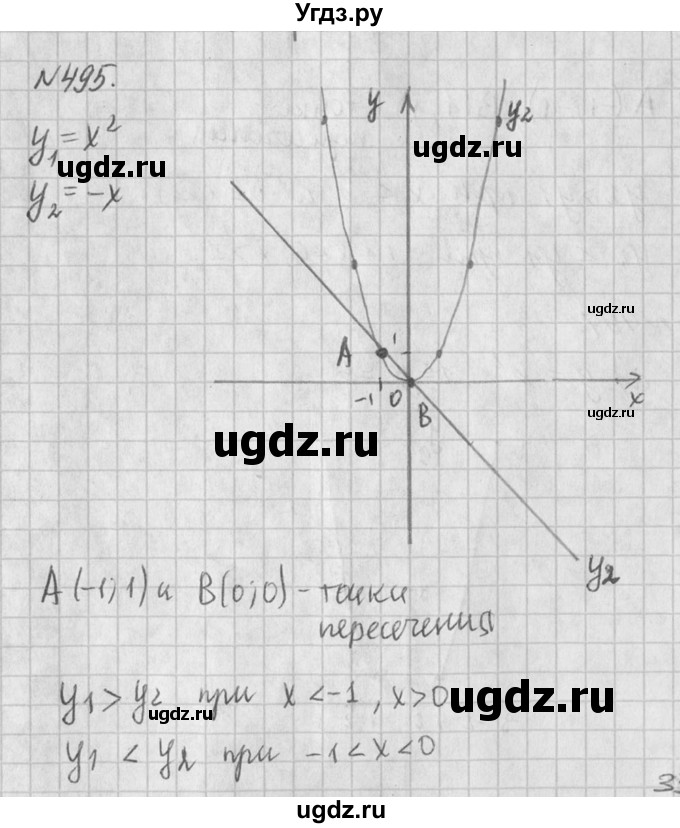 Угдз.ру
№495.
y₁ = x²
ugdz.ru
y₂ = -x
y
y₂
ugdz.ru
ugdz.ru
A
1
-1
0
x
B
ugdz.ru
ugdz.ru
y₂
A (-1; 1) и B(0; 0) - точки
пересечения
ugdz.ru
y₁ > y₂ при x < -1, x > 0
ugdz.ru
ugdz.ru
y₁ < y₂ при -1 < x < 0
ugdz.ru